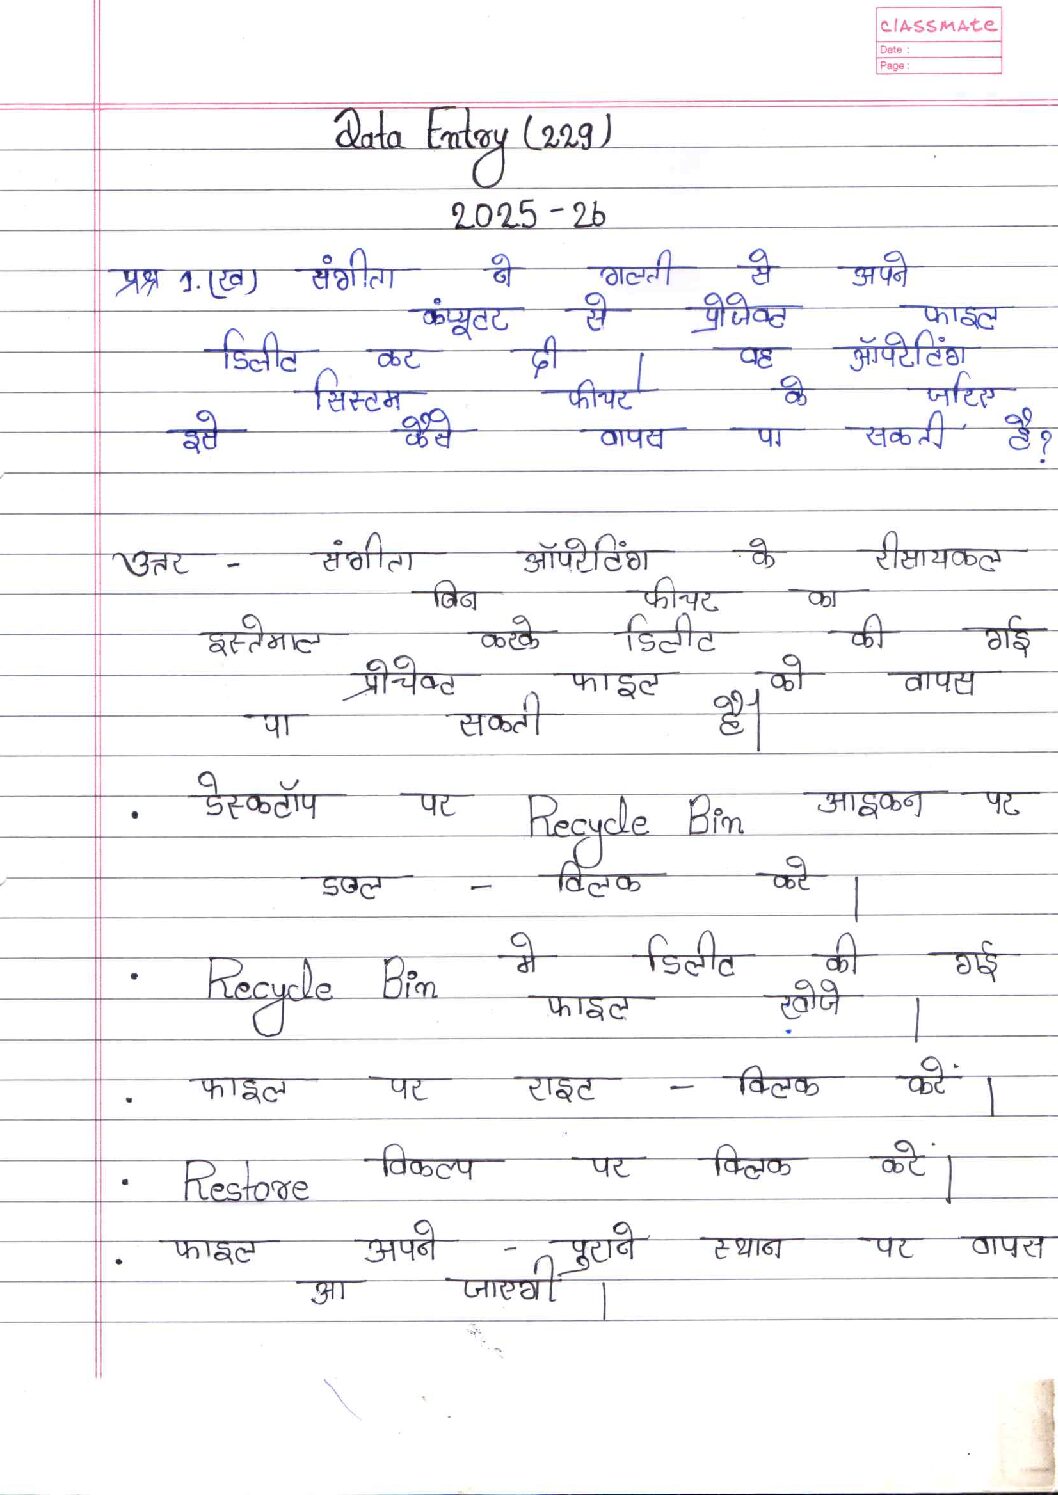 CLASSMATE
Date :
Page :
Data Entry (229)
2025-26
प्रश्न 1.(ख) संगीता ने गलती से अपने
कंप्यूटर से प्रोजेक्ट फाइल
डिलीट कर दी । वह ऑपरेटिंग
सिस्टम फीचर के जरिए
इसे कैसे वापस पा सकती है?
उत्तर - संगीता ऑपरेटिंग के रीसायकल
बिन फीचर का
इस्तेमाल करके डिलीट की गई
प्रोचेक्ट फाइल को वापस
पा सकती है।
• डेस्कटॉप पर Recycle Bin आइकन पर
डबल - क्लिक करे ।
• Recycle Bin मे डिलीट की गई
फाइल खोजे ।
• फाइल पर राइट - क्लिक करें ।
• Restore विकल्प पर क्लिक करें ।
• फाइल अपने - पुराने स्थान पर वापस
आ जाएगी ।